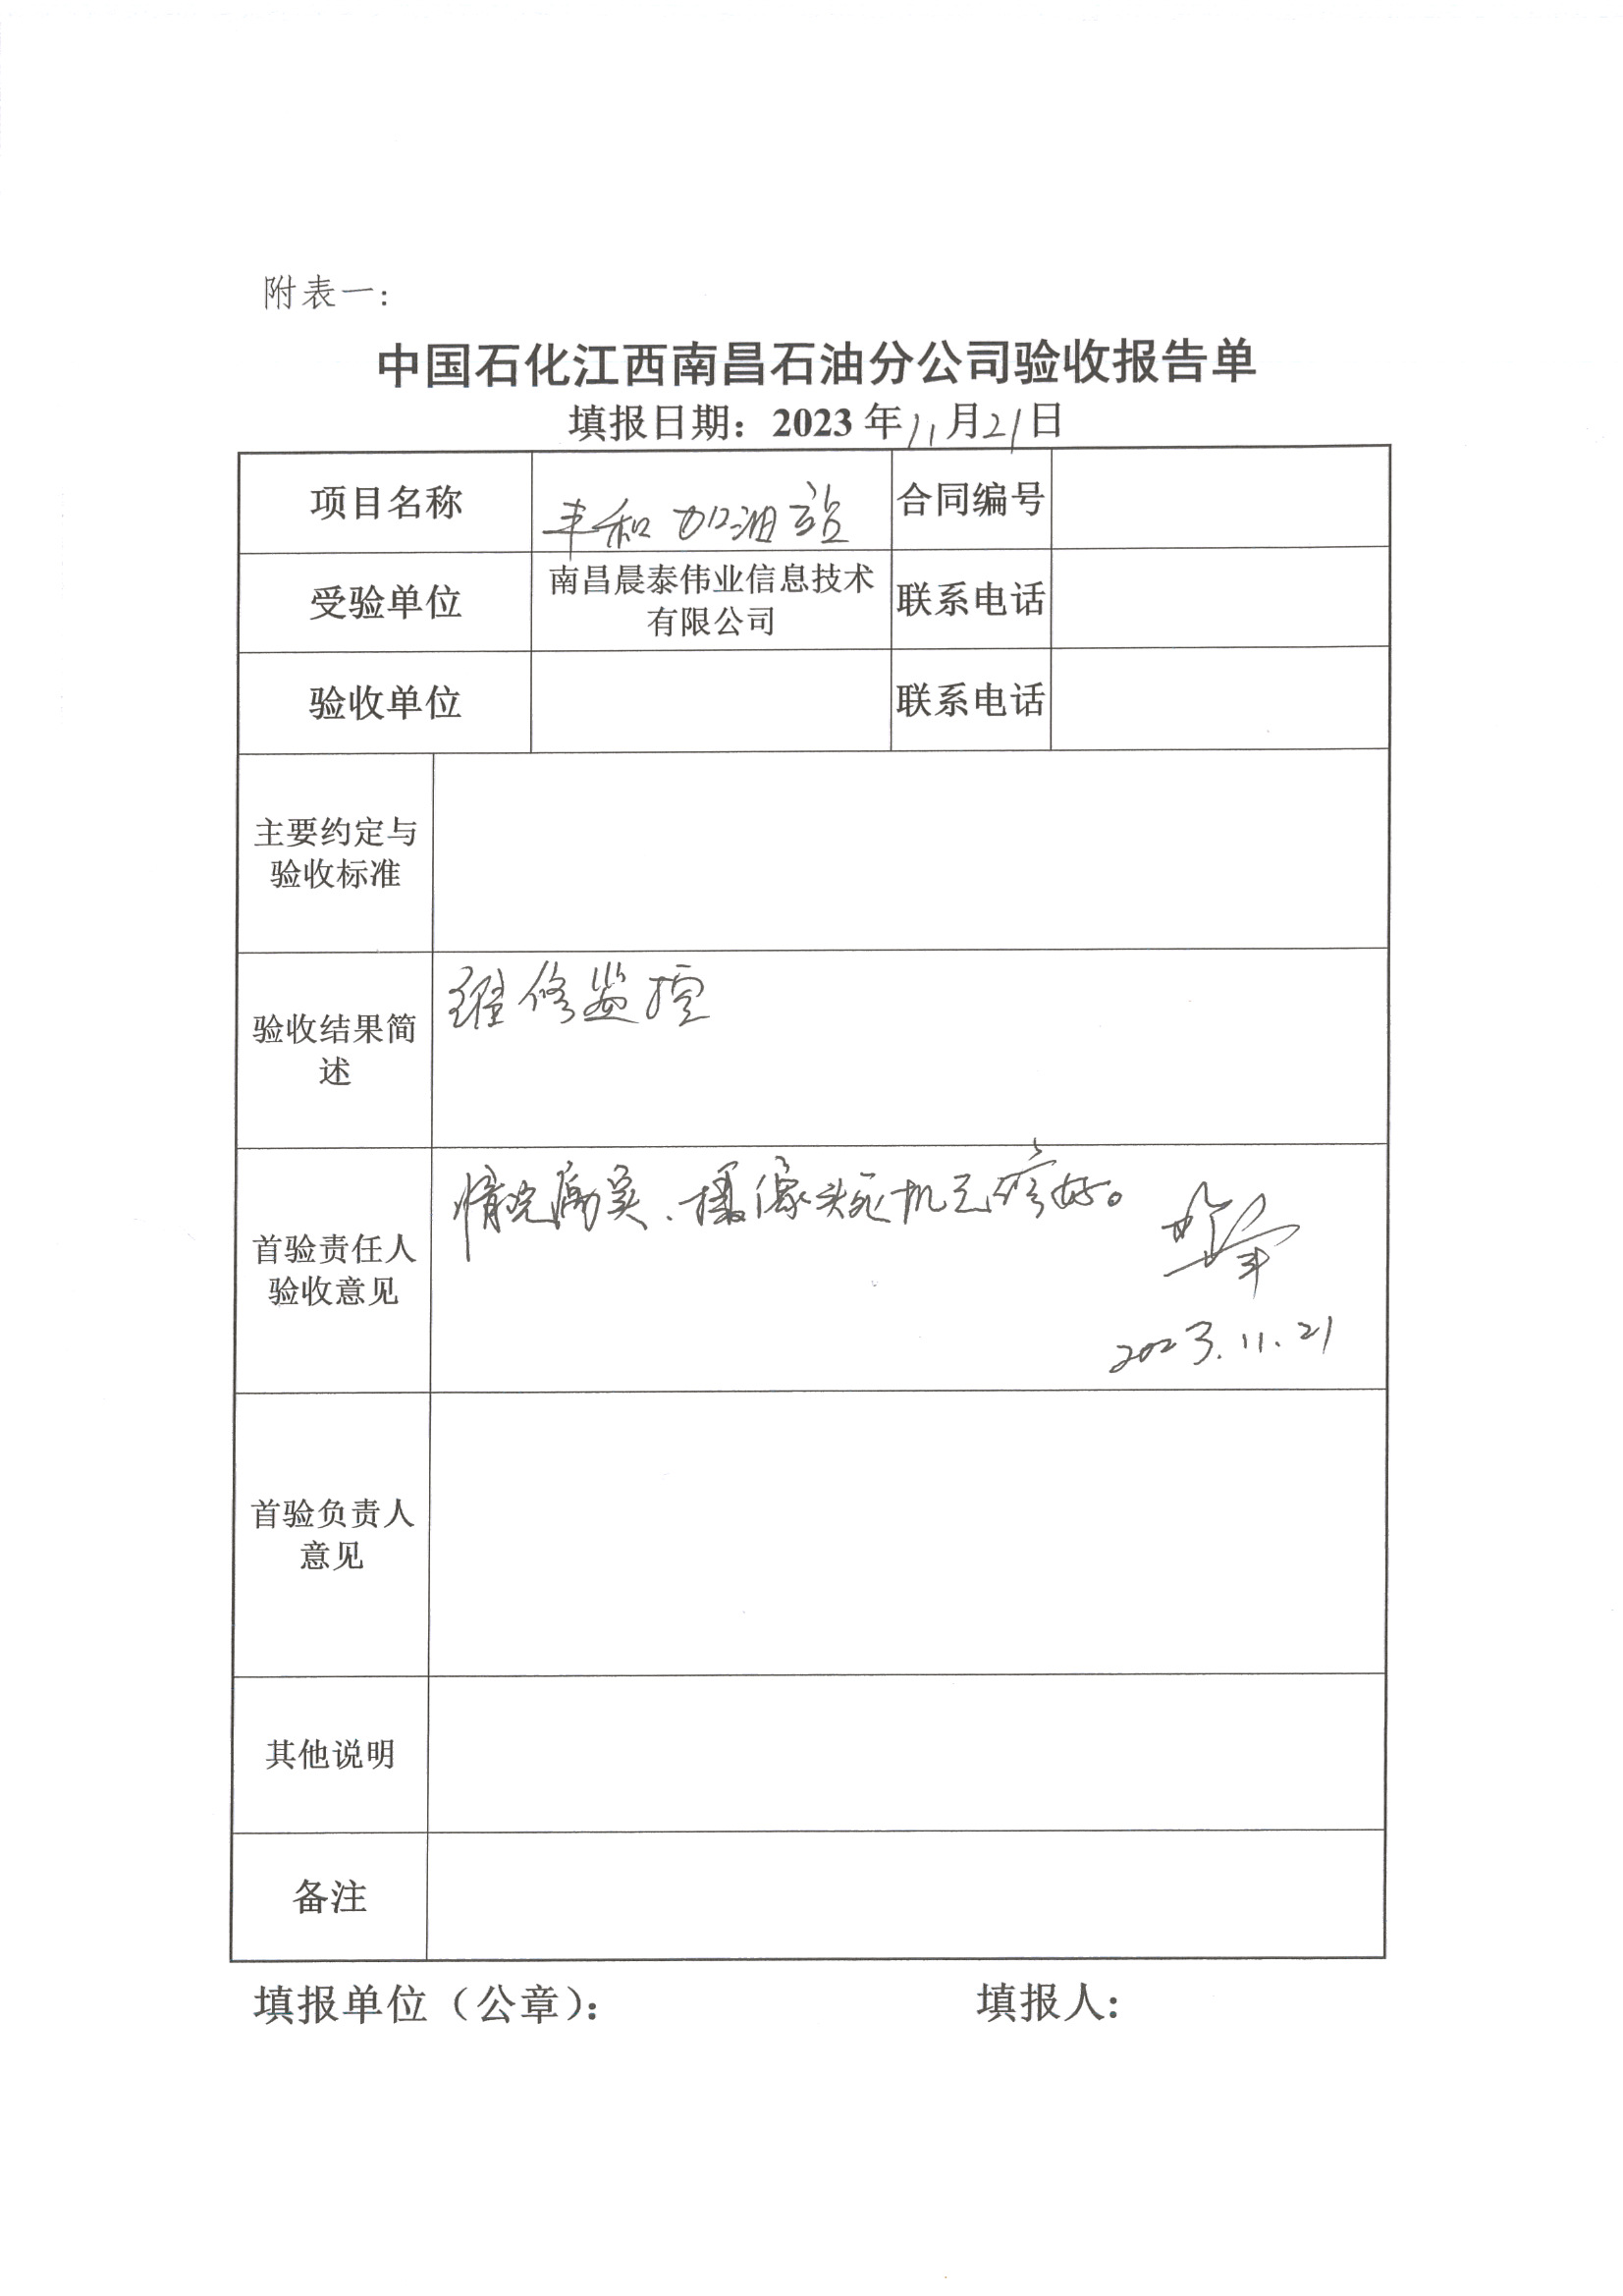 附表一：
中国石化江西南昌石油分公司验收报告单
填报日期：2023年11月21日
项目名称 丰和加油站 合同编号
受验单位 南昌晨泰伟业信息技术
有限公司 联系电话
验收单位 联系电话
主要约定与
验收标准
验收结果简
述
维修监控
首验责任人
验收意见
情况属实、摄像头死机已修好。
2023.11.21
首验负责人
意见
其他说明
备注
填报单位（公章）： 填报人：